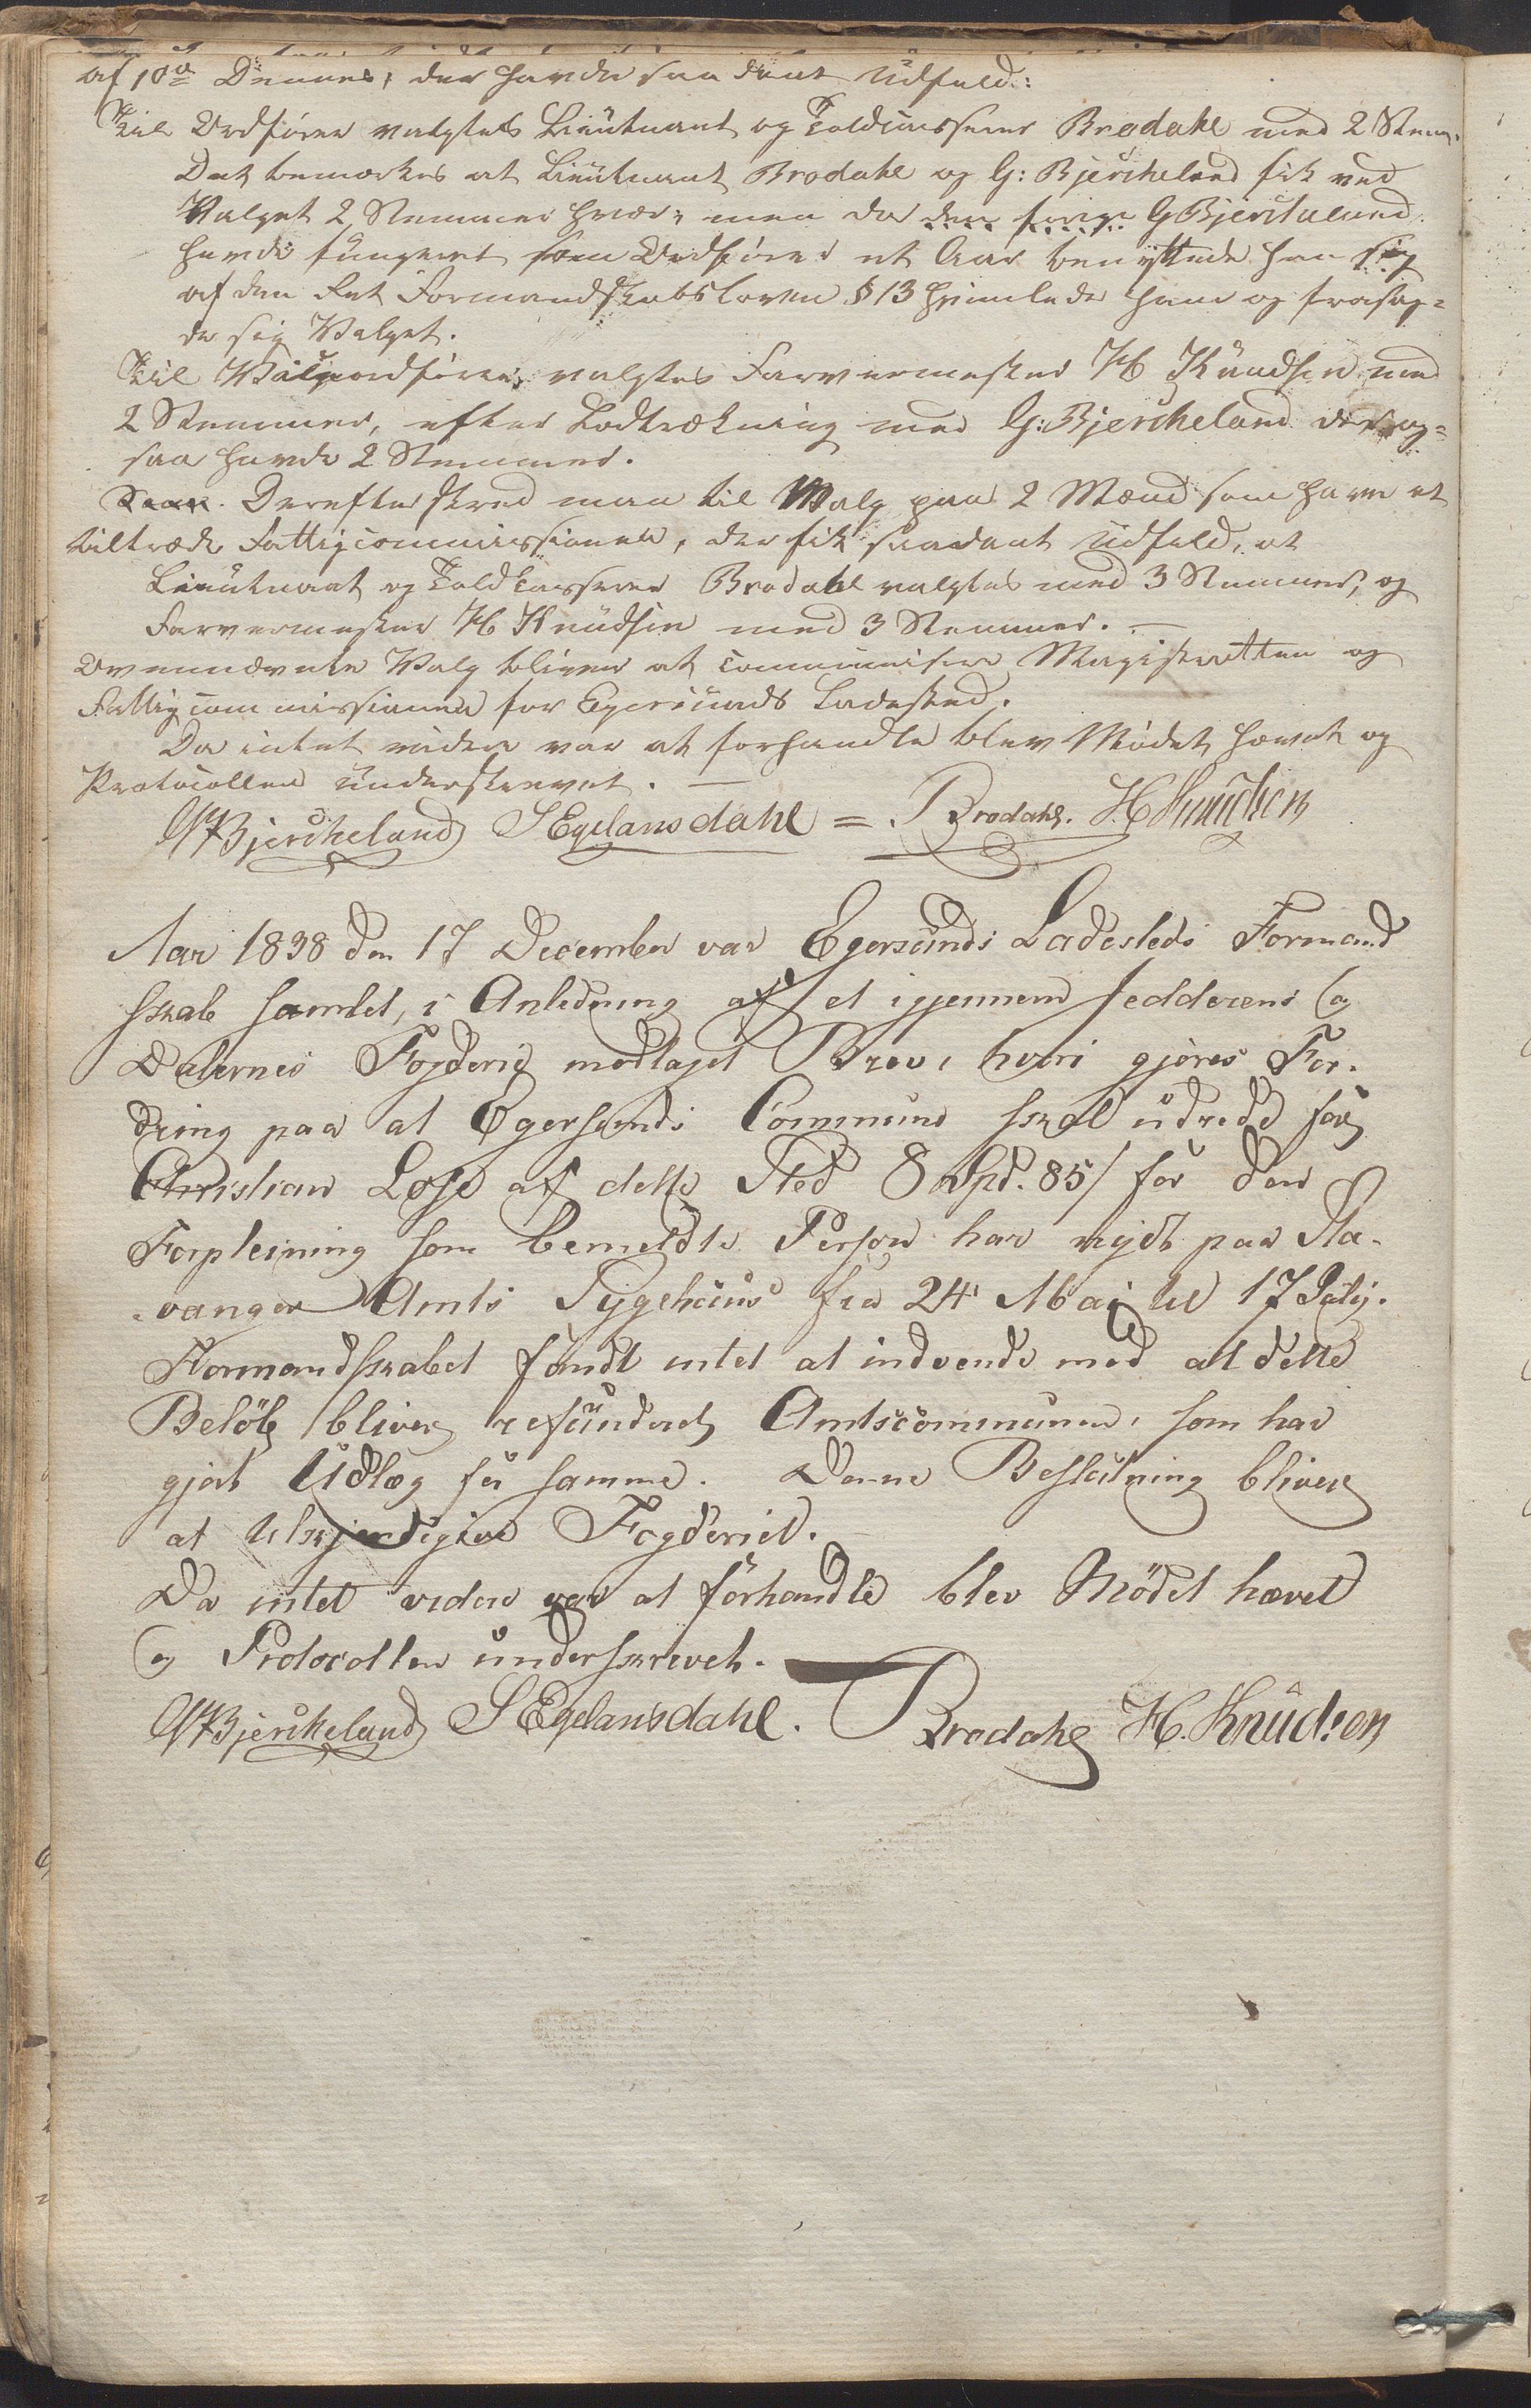 af 10de Dennes, der havde saadant Udfald:
Til Ordfører valgtes Lieutnant og Toldcasserer Brodahl med 2 Stem.
Det bemærkes at Lieutnant Brodahl og G: Bjerckeland fik ved
Valget 2 Stemmer hver, men da den forige GBjerckeland
havde fungeret som Ordfører et Aar benyttede han sig
af den Ret Formandskabsloven § 13 hjemlede ham og frasag-
de sig Valget.
Til Viceordfører valgtes Farvermester H Knudsen med
2 Stemmer, efter Lodtrækning med G: Bjerckeland der og-
saa havde 2 Stemmer.
Derefter skred man til Valg paa 2 Mænd som have at
tiltræde Fattigcommissionen, der fik saadant Udfald, at
Lieutnant og Toldcasserer Brodahl valgtes med 3 Stemmer, og
Farvermester H Knudsen med 3 Stemmer. —
Ovennævnte Valg bliver at communisere Magistratten og
Fattigcommissionen for Egersunds Ladested.
Da intet videre var at forhandle blev Mødet hævet og
Protocollen underskrevet. —
GBjerckeland SEgelandsdahl = Brodahl. H Knudsen
Aar 1838 den 17 December var Egersunds Ladesteds Formand
skab samlet, i Anledning af et igjennem Jedderens og
Dalernes Fogderie modtaget Brev, hvori gjøres For-
dring paa at Egersunds Commune skal udrede for
Christian Lose af dette Sted 8 Spd. 85 / for den
Forpleining som bemeldte Person har nydt paa Sta-
vanger Amts Sygehuus fra 24 Mai til 17 July.
Formandskabet fandt intet at indvende mod at dette
Beløb bliver refunderet Amtscommunen, som har
gjort Udlæg for samme. Denne Beslutning bliver
at tilkjendegive Fogderiet.
Da intet videre var at forhandle blev Mødet hævet
og Protocollen underskrevet.
GBjerckeland SEgelandsdahl. Brodahl H. Knudsen